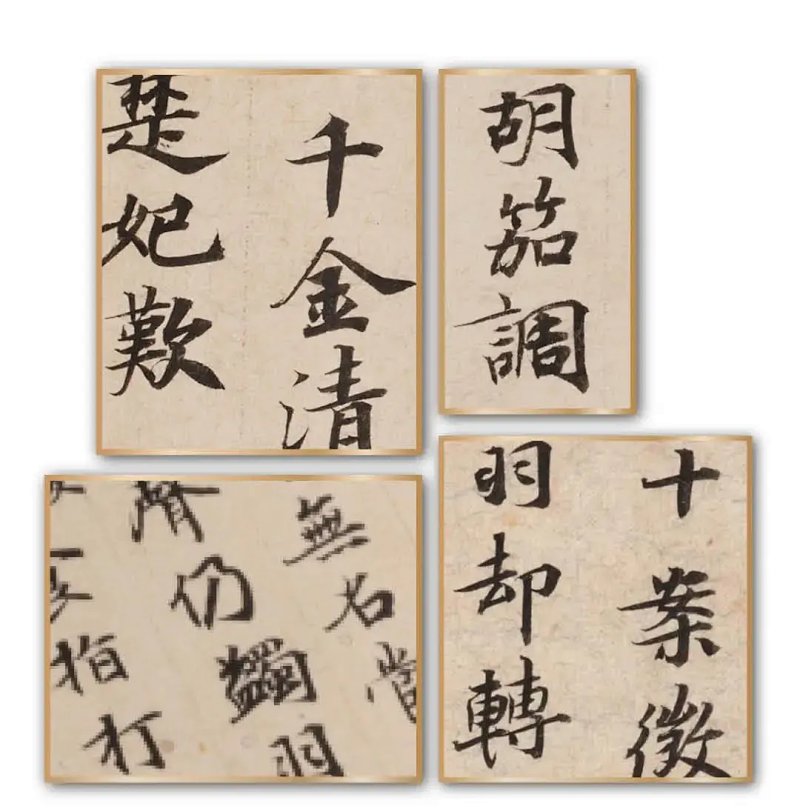 千金清
楚妃歎
胡笳調
無名當
仍蠲羽
指打
十案徵
羽却轉